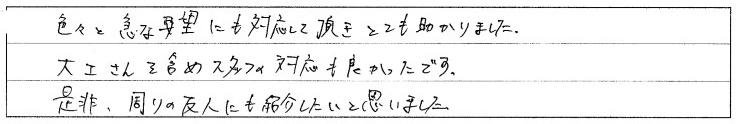 色々と急な要望にも対応して頂きとても助かりました.
大工さんを含めスタッフの対応も良かったです。
是非、周りの友人にも紹介したいと思いました